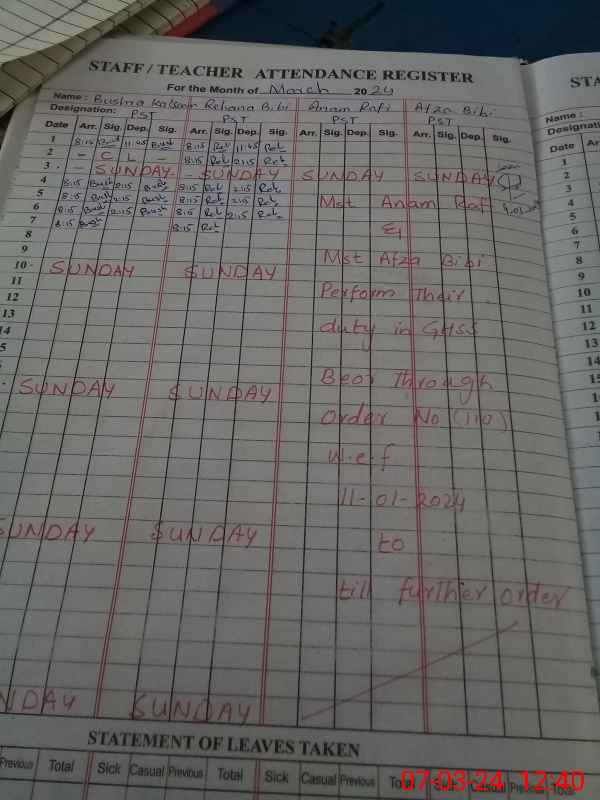 STAFF / TEACHER ATTENDANCE REGISTER
For the Month of March 2024
Name: Bushra Kalsoom Rehana Bibi Anam Rafi Afza Bibi
Designation: PST PST PST PST
Date Arr. Sig. Dep. Sig. Arr. Sig. Dep. Sig. Arr. Sig. Dep. Sig. Arr. Sig. Dep. Sig.
1 8:15 11:45 8:15 11:45
2 - C L - 8:15 2:15
3 - SUNDAY - SUNDAY SUNDAY SUNDAY
4 8:15 2:15 8:15 2:15 Mst Anam Rafi
5 8:15 2:15 8:15 2:15
6 8:15 2:15 8:15 2:15 &
7 8:15 8:15
8 Mst Afza Bibi
9
10 SUNDAY SUNDAY Perform Their
11
12 duty in GHSS
13
14 Through
5
SUNDAY SUNDAY Order No (110)
w.e.f
11-01-2024
SUNDAY SUNDAY to
till further order
NDAY SUNDAY
STATEMENT OF LEAVES TAKEN
Previous Total Sick Casual Previous Total Sick Casual Previous Total Sick Casual Previous Total
STA
Name:
Designati
Date Ar
1
2
3
4
7
8
9
10
11
12
13
14
15
07-03-24 12:40